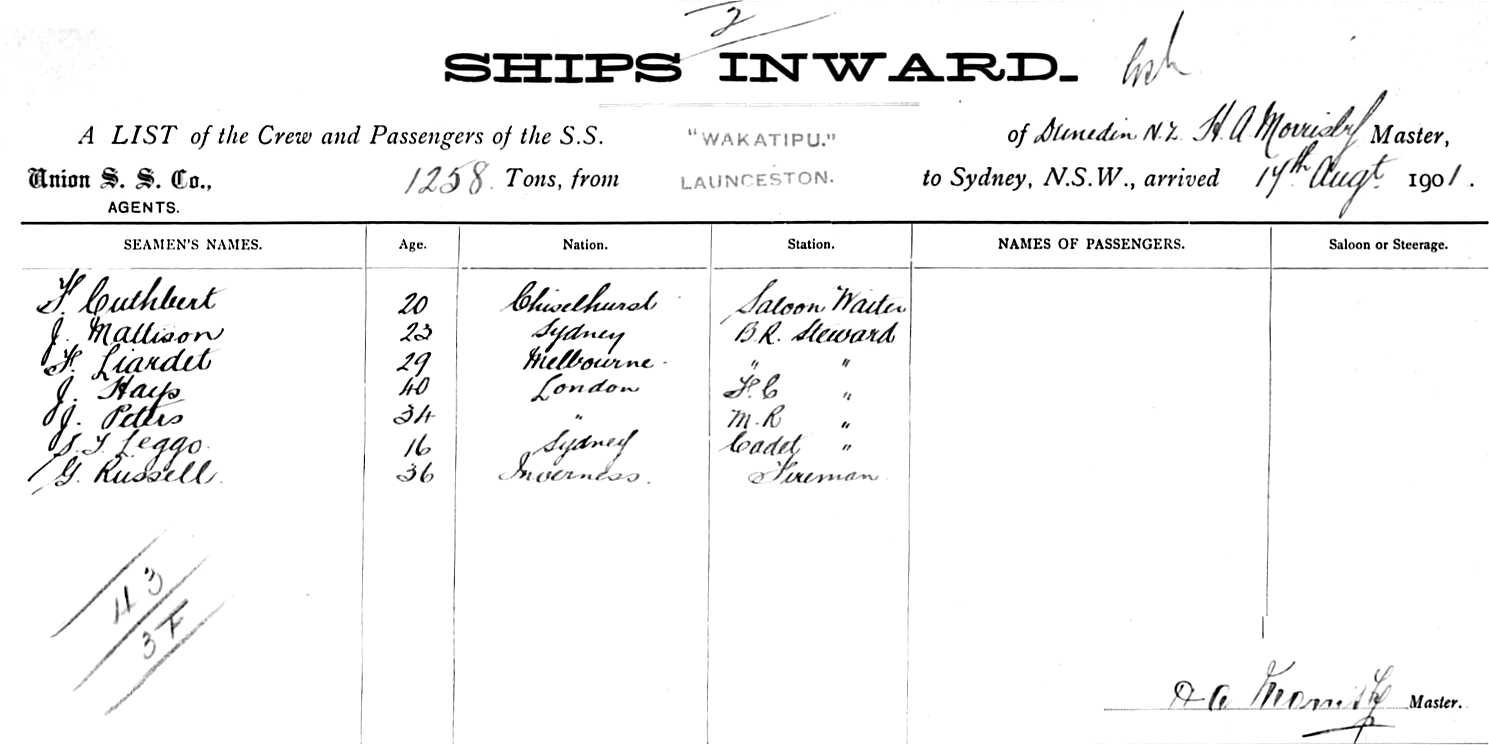 2
SHIPS INWARD.
A LIST of the Crew and Passengers of the S.S. "WAKATIPU." of Dunedin N.Z. H. A Morrisby Master,
Union S. S. Co., 1258 Tons, from LAUNCESTON. to Sydney, N.S.W., arrived 17th Augt. 1901.
AGENTS.
SEAMEN'S NAMES. Age. Nation. Station. NAMES OF PASSENGERS. Saloon or Steerage.
F. Cuthbert 20 Chiselhurst Saloon Waiter
J. Mattison 23 Sydney B.R. Steward
F. Liardet 29 Melbourne " "
J. Hays 40 London F.C "
J. Peters 34 " M.R "
S. T. Leggo 16 Sydney Cadet "
G. Russell 36 Inverness. Fireman
43
37
H A Morrisby Master.